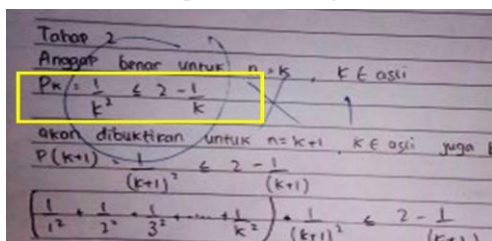 Tahap 2
Anggap benar untuk n = k, k ∈ asli
Pk = 1/k² ≤ 2 - 1/k
akan dibuktikan untuk n = k+1, k ∈ asli juga
P(k+1) = 1/(k+1)² ≤ 2 - 1/(k+1)
(1/1² + 1/2² + 1/3² + ..... + 1/k²) + 1/(k+1)² ≤ 2 - 1/(k+1)